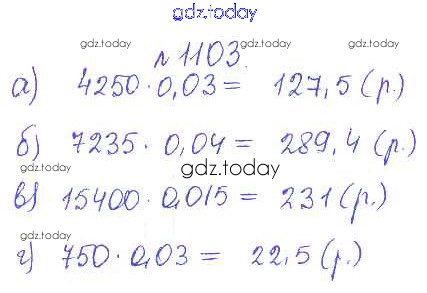 gdz.today
gdz.today gdz.today
№ 1103.
а) 4250 · 0,03 = 127,5 (р.)
б) 7235 · 0,04 = 289,4 (р.)
gdz.today gdz.today gdz.today
в) 15400 · 0,015 = 231 (р.)
gdz.today gdz.today
г) 750 · 0,03 = 22,5 (р.)
gdz.today